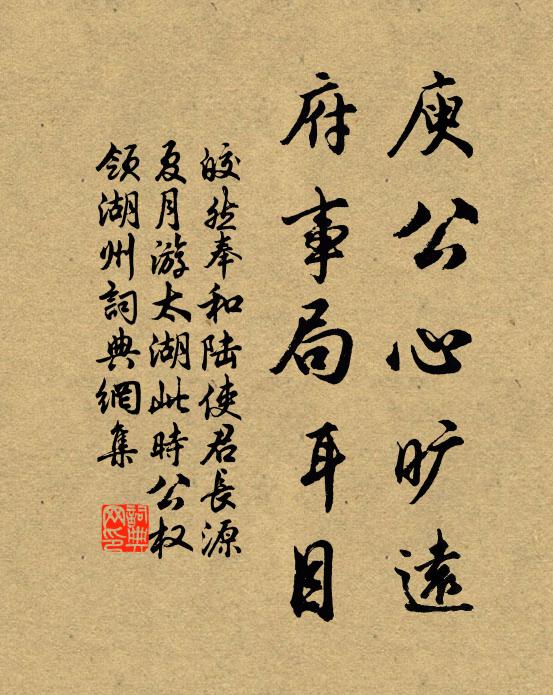 庾公心旷遠
府事局耳目
皎然奉和陆使君長源
夏月游太湖此時公权
领湖州詞典網集
詞典网印